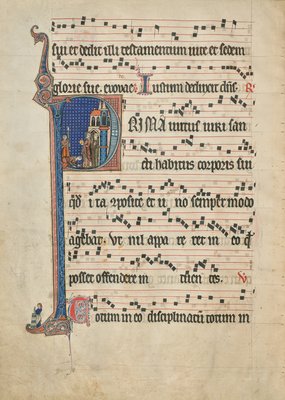 sui et dedit illi testamentum vite et sedem
glorie sue. evovae. Iustum deduxit dñs. R
PRIMA virtus viri san
cti habitus corporis fui
ita positi et u no semper modo
agebat. Ut nil appa re ret in eo q
posset offendere in tuen tes. V
Totum in eo disciplinatũ totum in